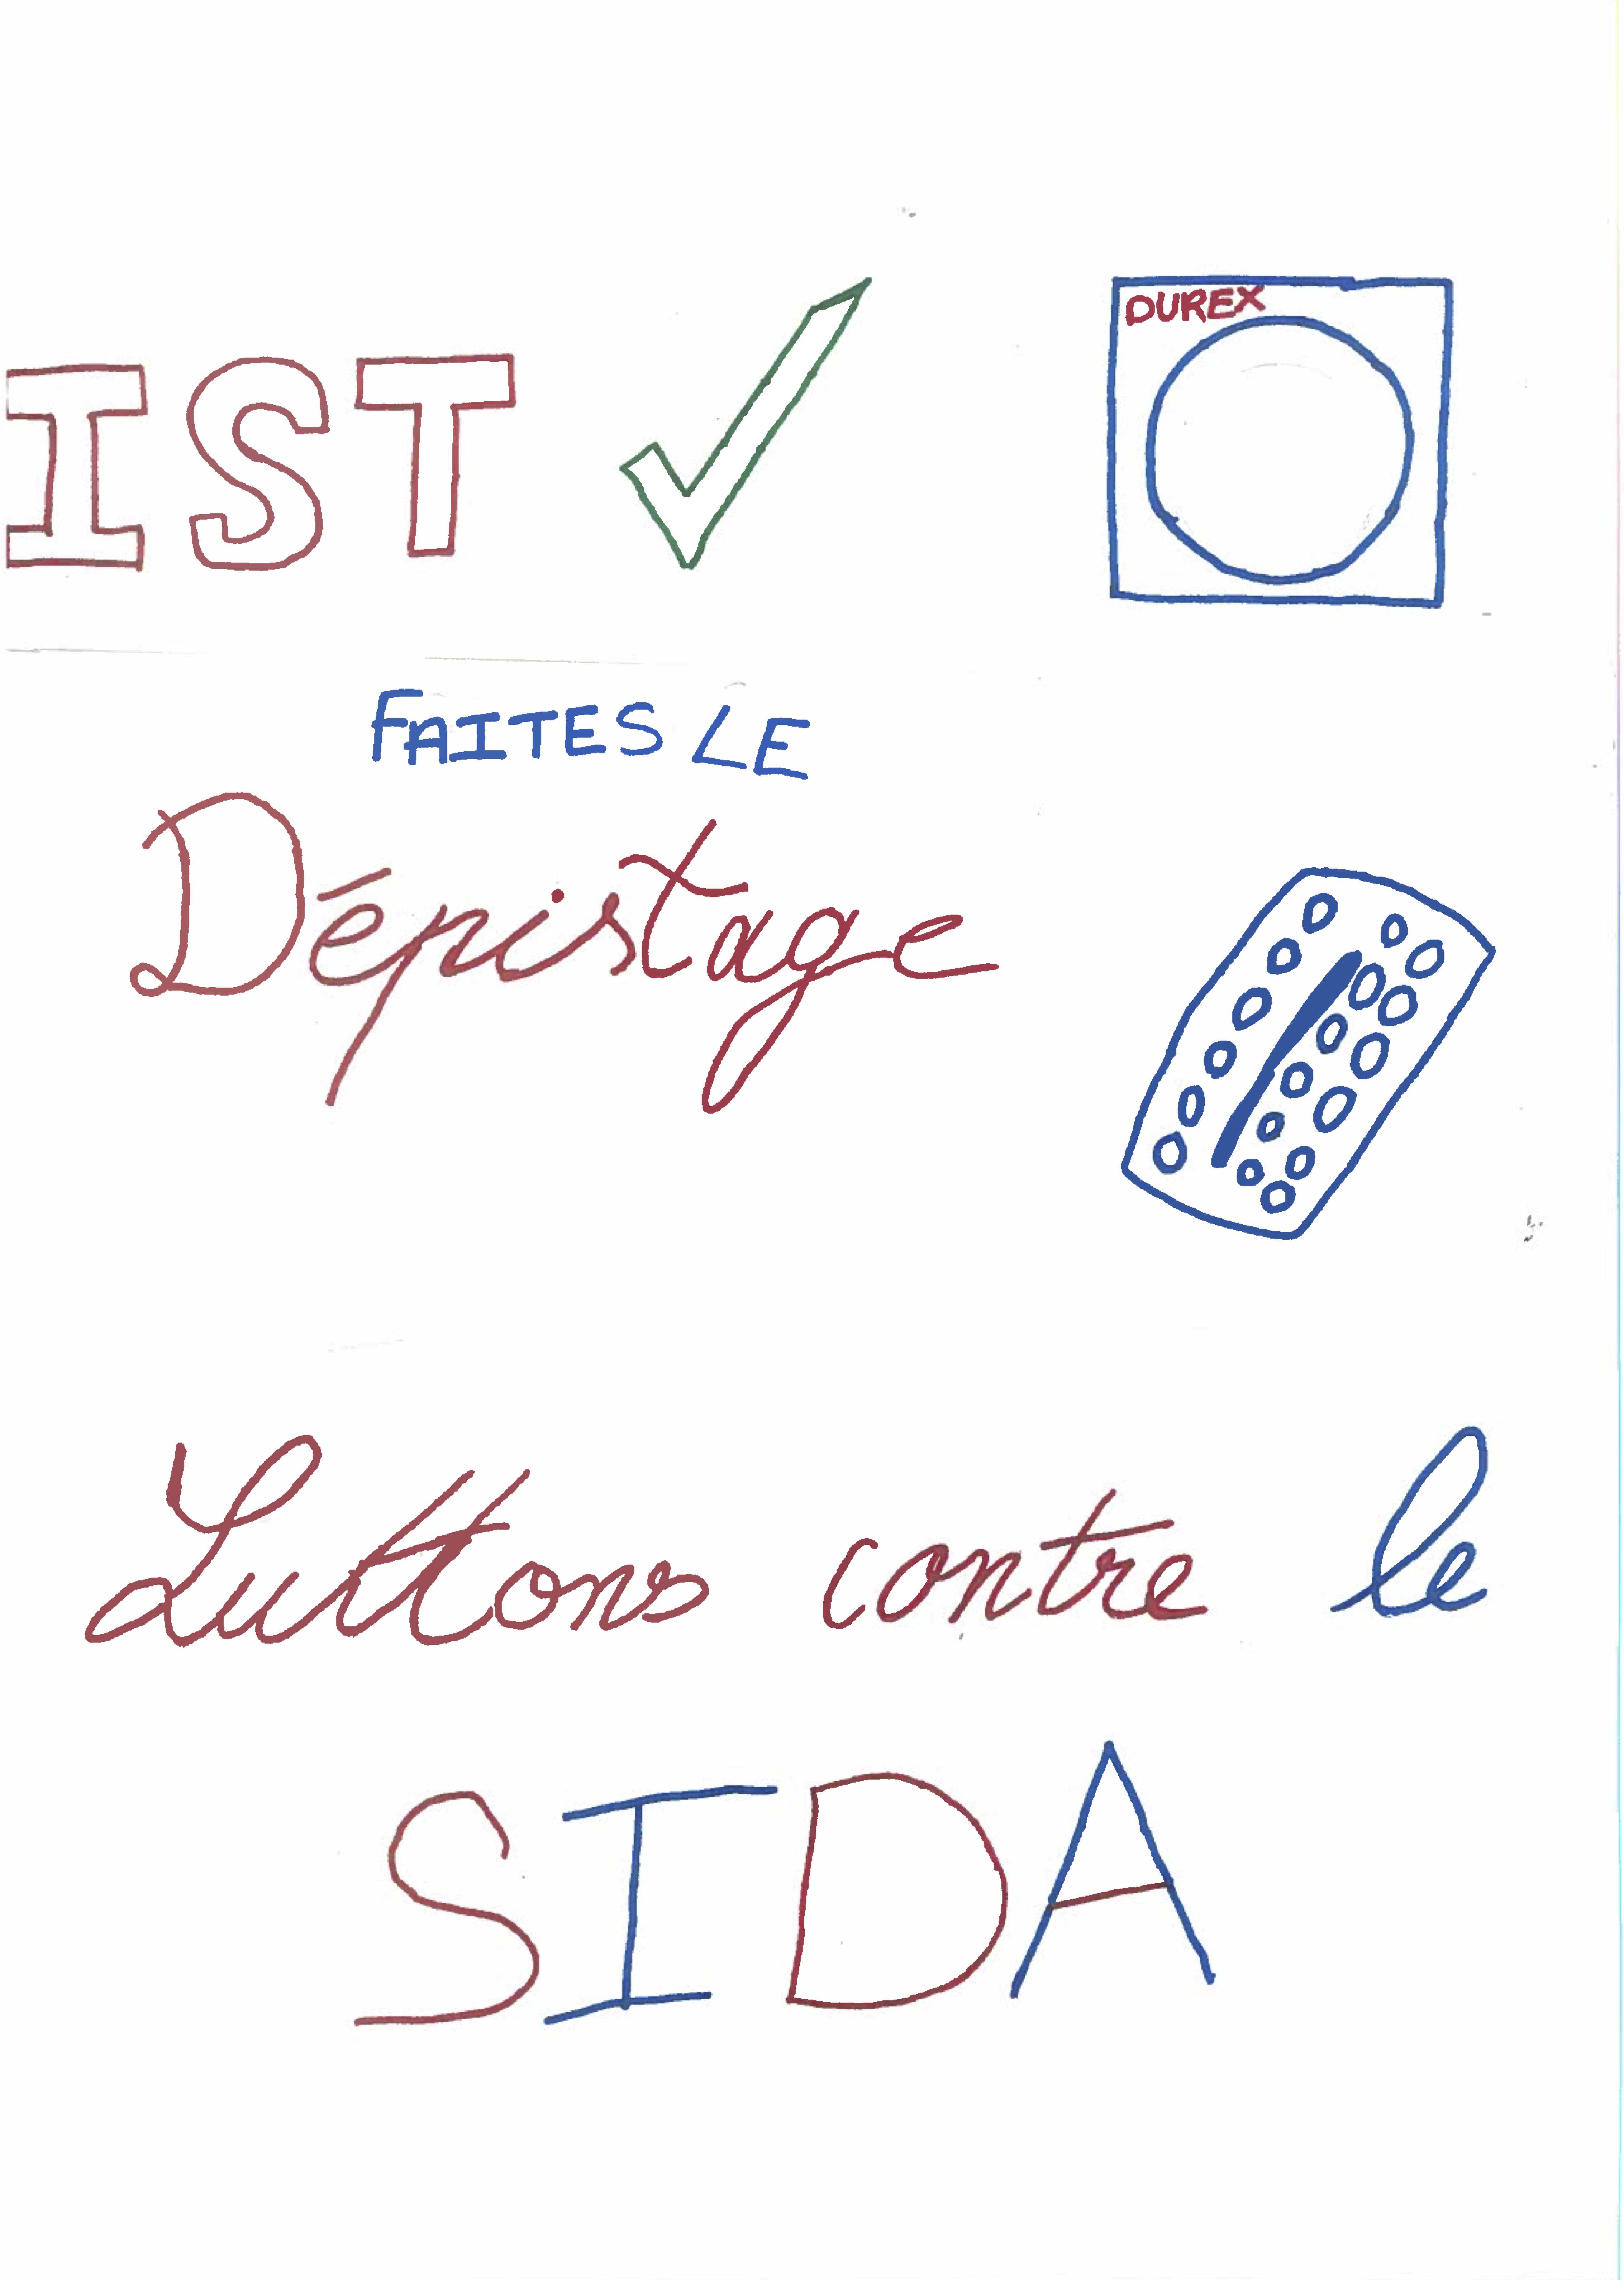 IST
DUREX
FAITES LE
Dépistage
Luttons contre le
SIDA